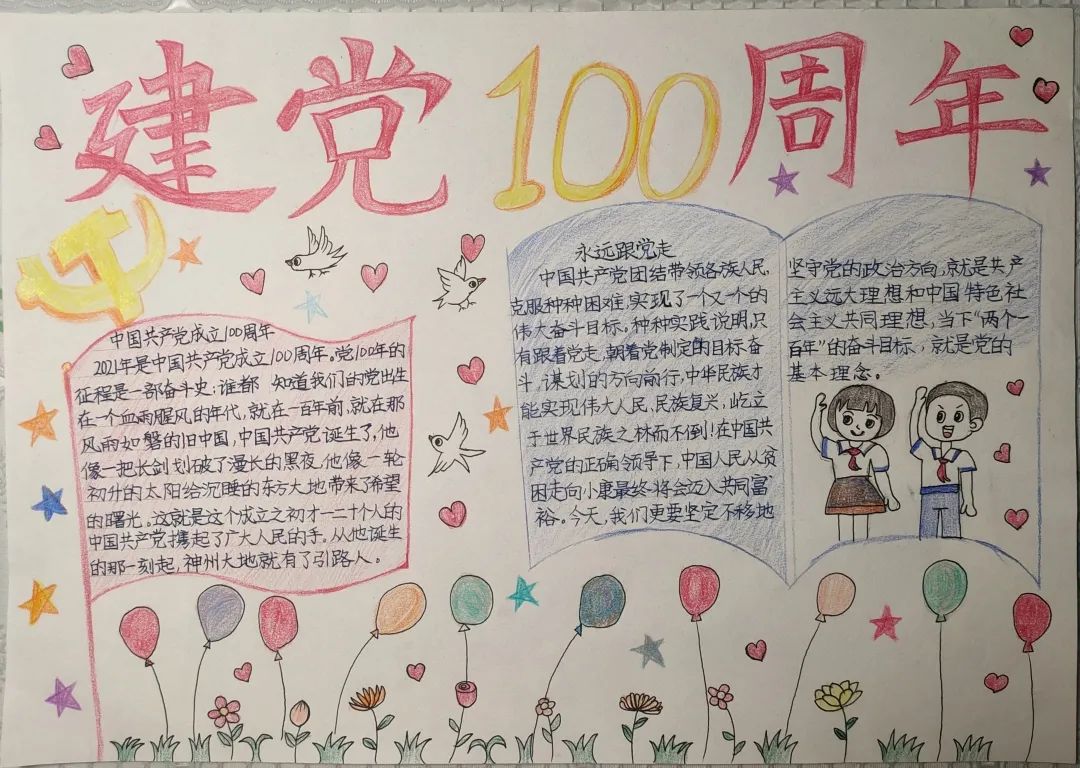 建党100周年
中国共产党成立100周年
2021年是中国共产党成立100周年。党100年的
征程是一部奋斗史,谁都 知道我们的党出生
在一个血雨腥风的年代,就在一百年前,就在那
风雨如磐的旧中国,中国共产党诞生了,他
像一把长剑划破了漫长的黑夜,他像一轮
初升的太阳给沉睡的东方大地带来了希望
的曙光。这就是这个成立之初才一二十个人的
中国共产党携起了广大人民的手。从他诞生
的那一刻起,神州大地就有了引路人。
永远跟党走
中国共产党团结带领各族人民,
克服种种困难,实现了一个又一个的
伟大奋斗目标。种种实践说明,只
有跟着党走,朝着党制定的目标奋
斗,谋划的方向前行,中华民族才
能实现伟大人民,民族复兴,屹立
于世界民族之林而不倒!在中国共
产党的正确领导下,中国人民从贫
困走向小康最终将会迈入共同富
裕。今天,我们更要坚定不移地
坚守党的政治方向,就是共产
主义远大理想和中国特色社
会主义共同理想,当下“两个一
百年”的奋斗目标,就是党的
基本理念。